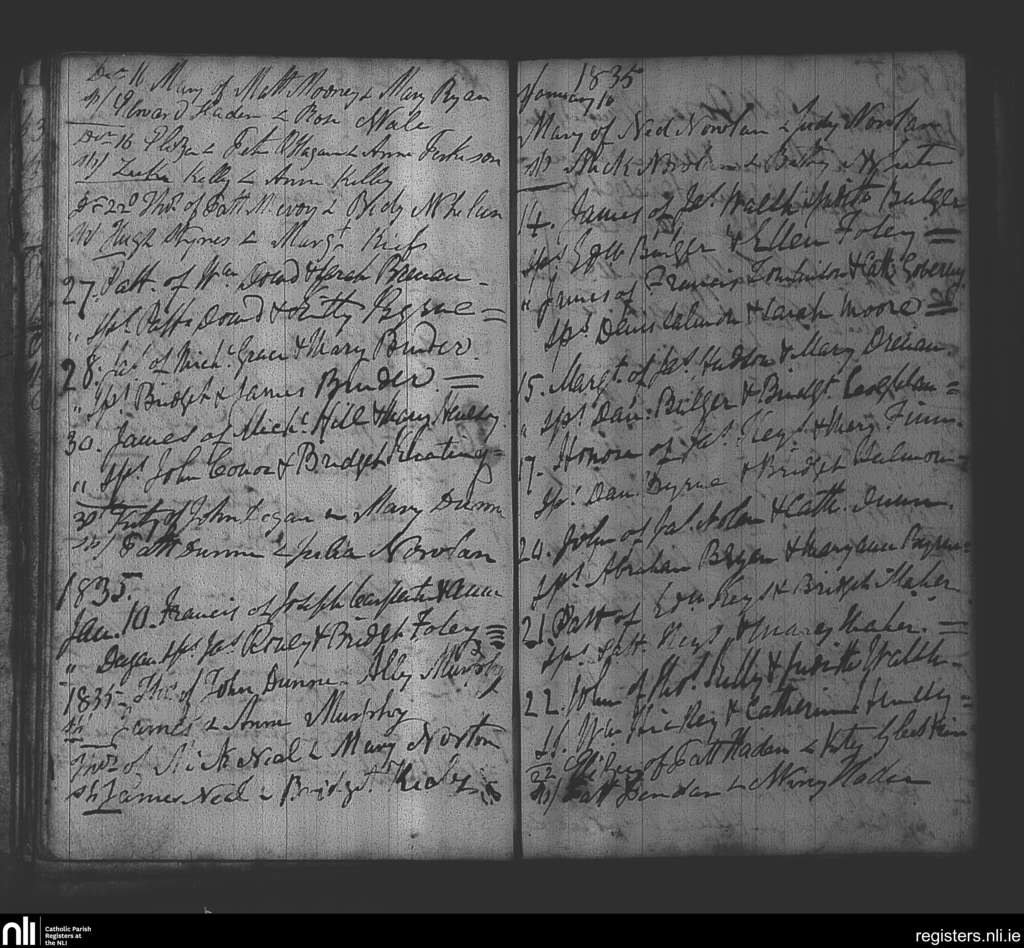 Decr 16 Mary of Matt Mooney & Mary Ryan
sps/ Edward Haden & Rose Neale
Decr 16 Eliza & Peter Hagan & Anne Ferkeson
sps/ Kelly & Anne Kelly
Dr 22d Thos. of Patt McEvoy & Bidy Whelan
sps Hugh Hynes & Margt
27. Patt. of Wm Dowd & Sarah Brenan
" Sps. Patt Dowd & Kitty Byrne =
28. of Michl. Grace & Mary Bruder
" Sps. Bridget & James Bruder =
30. James of Michl. Hill & Mary
" Sps. John Conor & Bridget Keating =
30 Kity of John Hogan & Mary Dunne
sps/ Patt Dunne & Julia Nowlan
1835.
Jan. 10. Francis of Joseph Carpenter & Anne
" Degan sps. Jas. & Bridgt. Foley =
1835 Thos. of John Dunne Alley Murphy
sps James & Anne Murphy
Thos. of Mick Neal & Mary Norton
sps/ James Neal & Bridget Kealy
1835
January 10
Mary of Ned Nowlan & Judy Nowlan
sps Mick Nowlan & Betty White
14. James of Jas. Walsh Judith Bulger
Sps. Edwd Bulger & Ellen Foley =
" James of Francis Tomlinson & Cath.
Sps. Denis & Sarah Moore =
15. Margt. of Jas. Hudson & Mary Brenan
" Sps. Dan. Bulger & Bridgt. Coghlan =
17. Honora of Jas. Keys & Mary Finn.
Sps. Dan. Byrne & Bridget
24. John of Jas. Nolan & Cath. Dunn.
Sps. Abraham Bryan & Maryanne Byrne
21. Patt of Edw. Keys & Bridget Maher
Sps. Patt Keys & Mary Maher. =
22. John of Thos. & Judith Walsh
Sps. Wm Hickey & Catherine =
22 of Patt Haden & Kity
sps/ Patt & Mary Haden
nli
Catholic Parish
Registers at
the NLI
registers.nli.ie